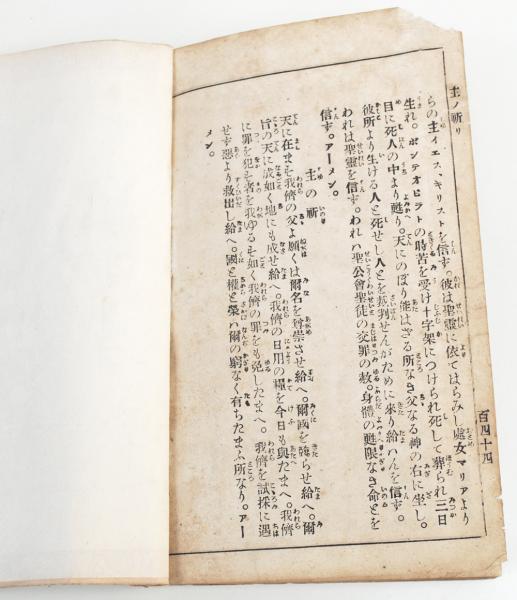 主ノ祈り
百四十四
らの主イエス、キリストを信ず。彼は聖靈に依てはらみし處女マリアより
生れ。ポンテオピラトの時苦を受け十字架につけられ死して葬られ三日
目に死人の中より甦り。天にのぼり能はざる所なき父なる神の右に坐し。
彼所より生ける人と死せし人とを裁判せんがために來り給ハんを信ず。
われは聖靈を信ず。われハ聖公會聖徒の交罪の赦。身體の甦限なき命とを
信ず。アーメン。
主の祈
天に在ます我儕の父よ願くは爾名を尊崇させ給へ。爾國を臨らせ給へ。爾
旨の天に成如く地にも成せ給へ。我儕の日用の糧を今日も與たまへ。我儕
に罪を犯す者を我ゆるす如く我儕の罪をも免したまへ。我儕を試探に遇
せず惡より救出し給へ。國と權と榮ハ爾の窮なく有ちたまふ所なり。アー
メン。